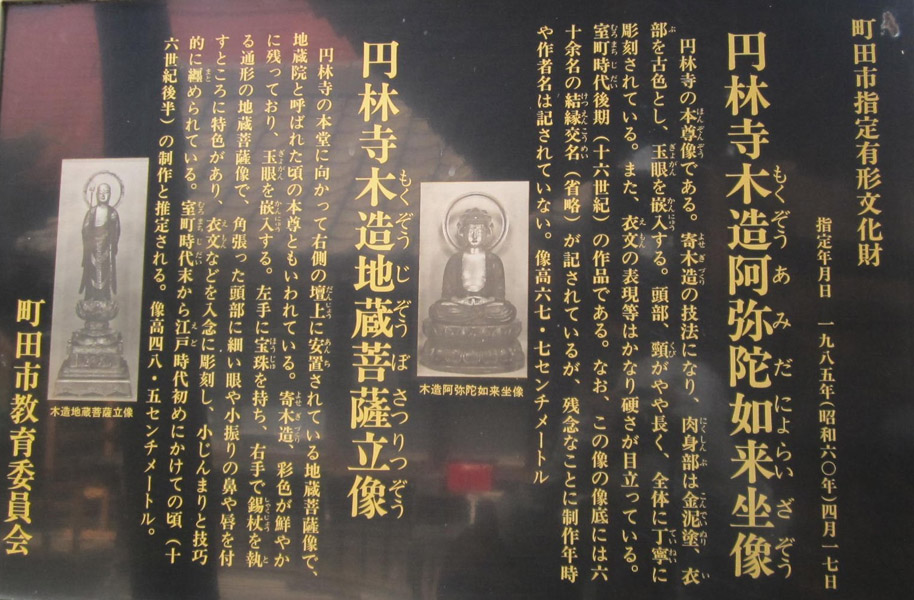 町田市指定有形文化財
指定年月日　一九八五年(昭和六〇年)四月一七日
円林寺木造阿弥陀如来坐像
もくぞうあみだにょらいざぞう
円林寺の本尊像である。寄木造の技法になり、肉身部は金泥塗、衣
部を古色とし、玉眼を嵌入する。頭部、頸がやや長く、全体に丁寧に
彫刻されている。また、衣文の表現等はかなり硬さが目立っている。
室町時代後期(十六世紀)の作品である。なお、この像の像底には六
十余名の結縁交名(省略)が記されているが、残念なことに制作年時
や作者名は記されていない。像高六七・七センチメートル
木造阿弥陀如来坐像
円林寺木造地蔵菩薩立像
もくぞうじぞうぼさつりつぞう
円林寺の本堂に向かって右側の壇上に安置されている地蔵菩薩像で、
地蔵院と呼ばれた頃の本尊ともいわれている。寄木造、彩色が鮮やか
に残っており、玉眼を嵌入する。左手に宝珠を持ち、右手で錫杖を執
る通形の地蔵菩薩像で、角張った頭部に細い眼や小振りの鼻や唇を付
すところに特色があり、衣文などを入念に彫刻し、小じんまりと技巧
的に纏められている。室町時代末から江戸時代初めにかけての頃(十
六世紀後半)の制作と推定される。像高四八・五センチメートル。
木造地蔵菩薩立像
町田市教育委員会